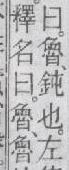 曰魯鈍也左
釋名曰魯魯